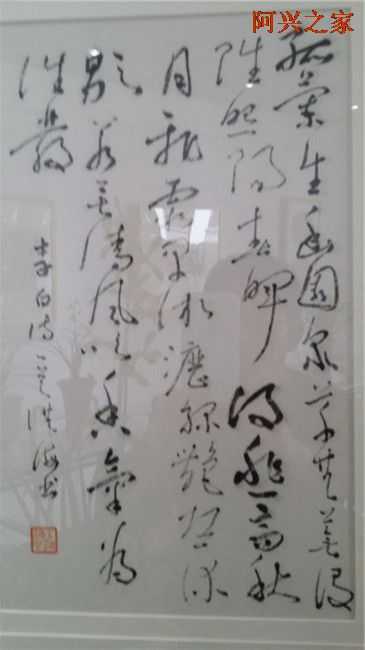 阿兴之家
孤兰生幽园众草共芜没
虽照阳春晖复悲高秋
月飞霜早淅沥绿艳恐休
歇若无清风吹香气为
谁发
李白诗一首